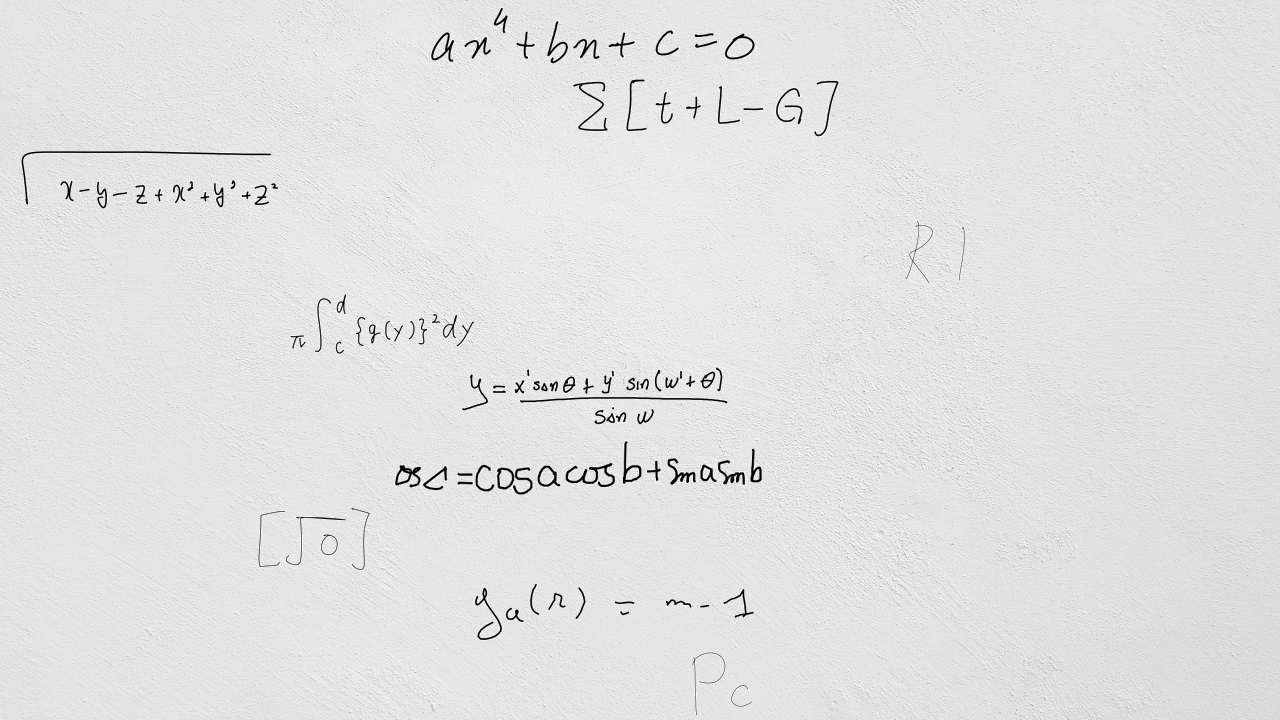 ax⁴+bx+c=0
Σ[t+L-G]
√x-y-z+x²+y³+z²
R1
π∫_c^d {g(y)}²dy
y = (x' sin θ + y' sin(w'+θ)) / sin w
os c = cos a cos b + sin a sin b
[√0]
g_a(r) = m-1
P_c